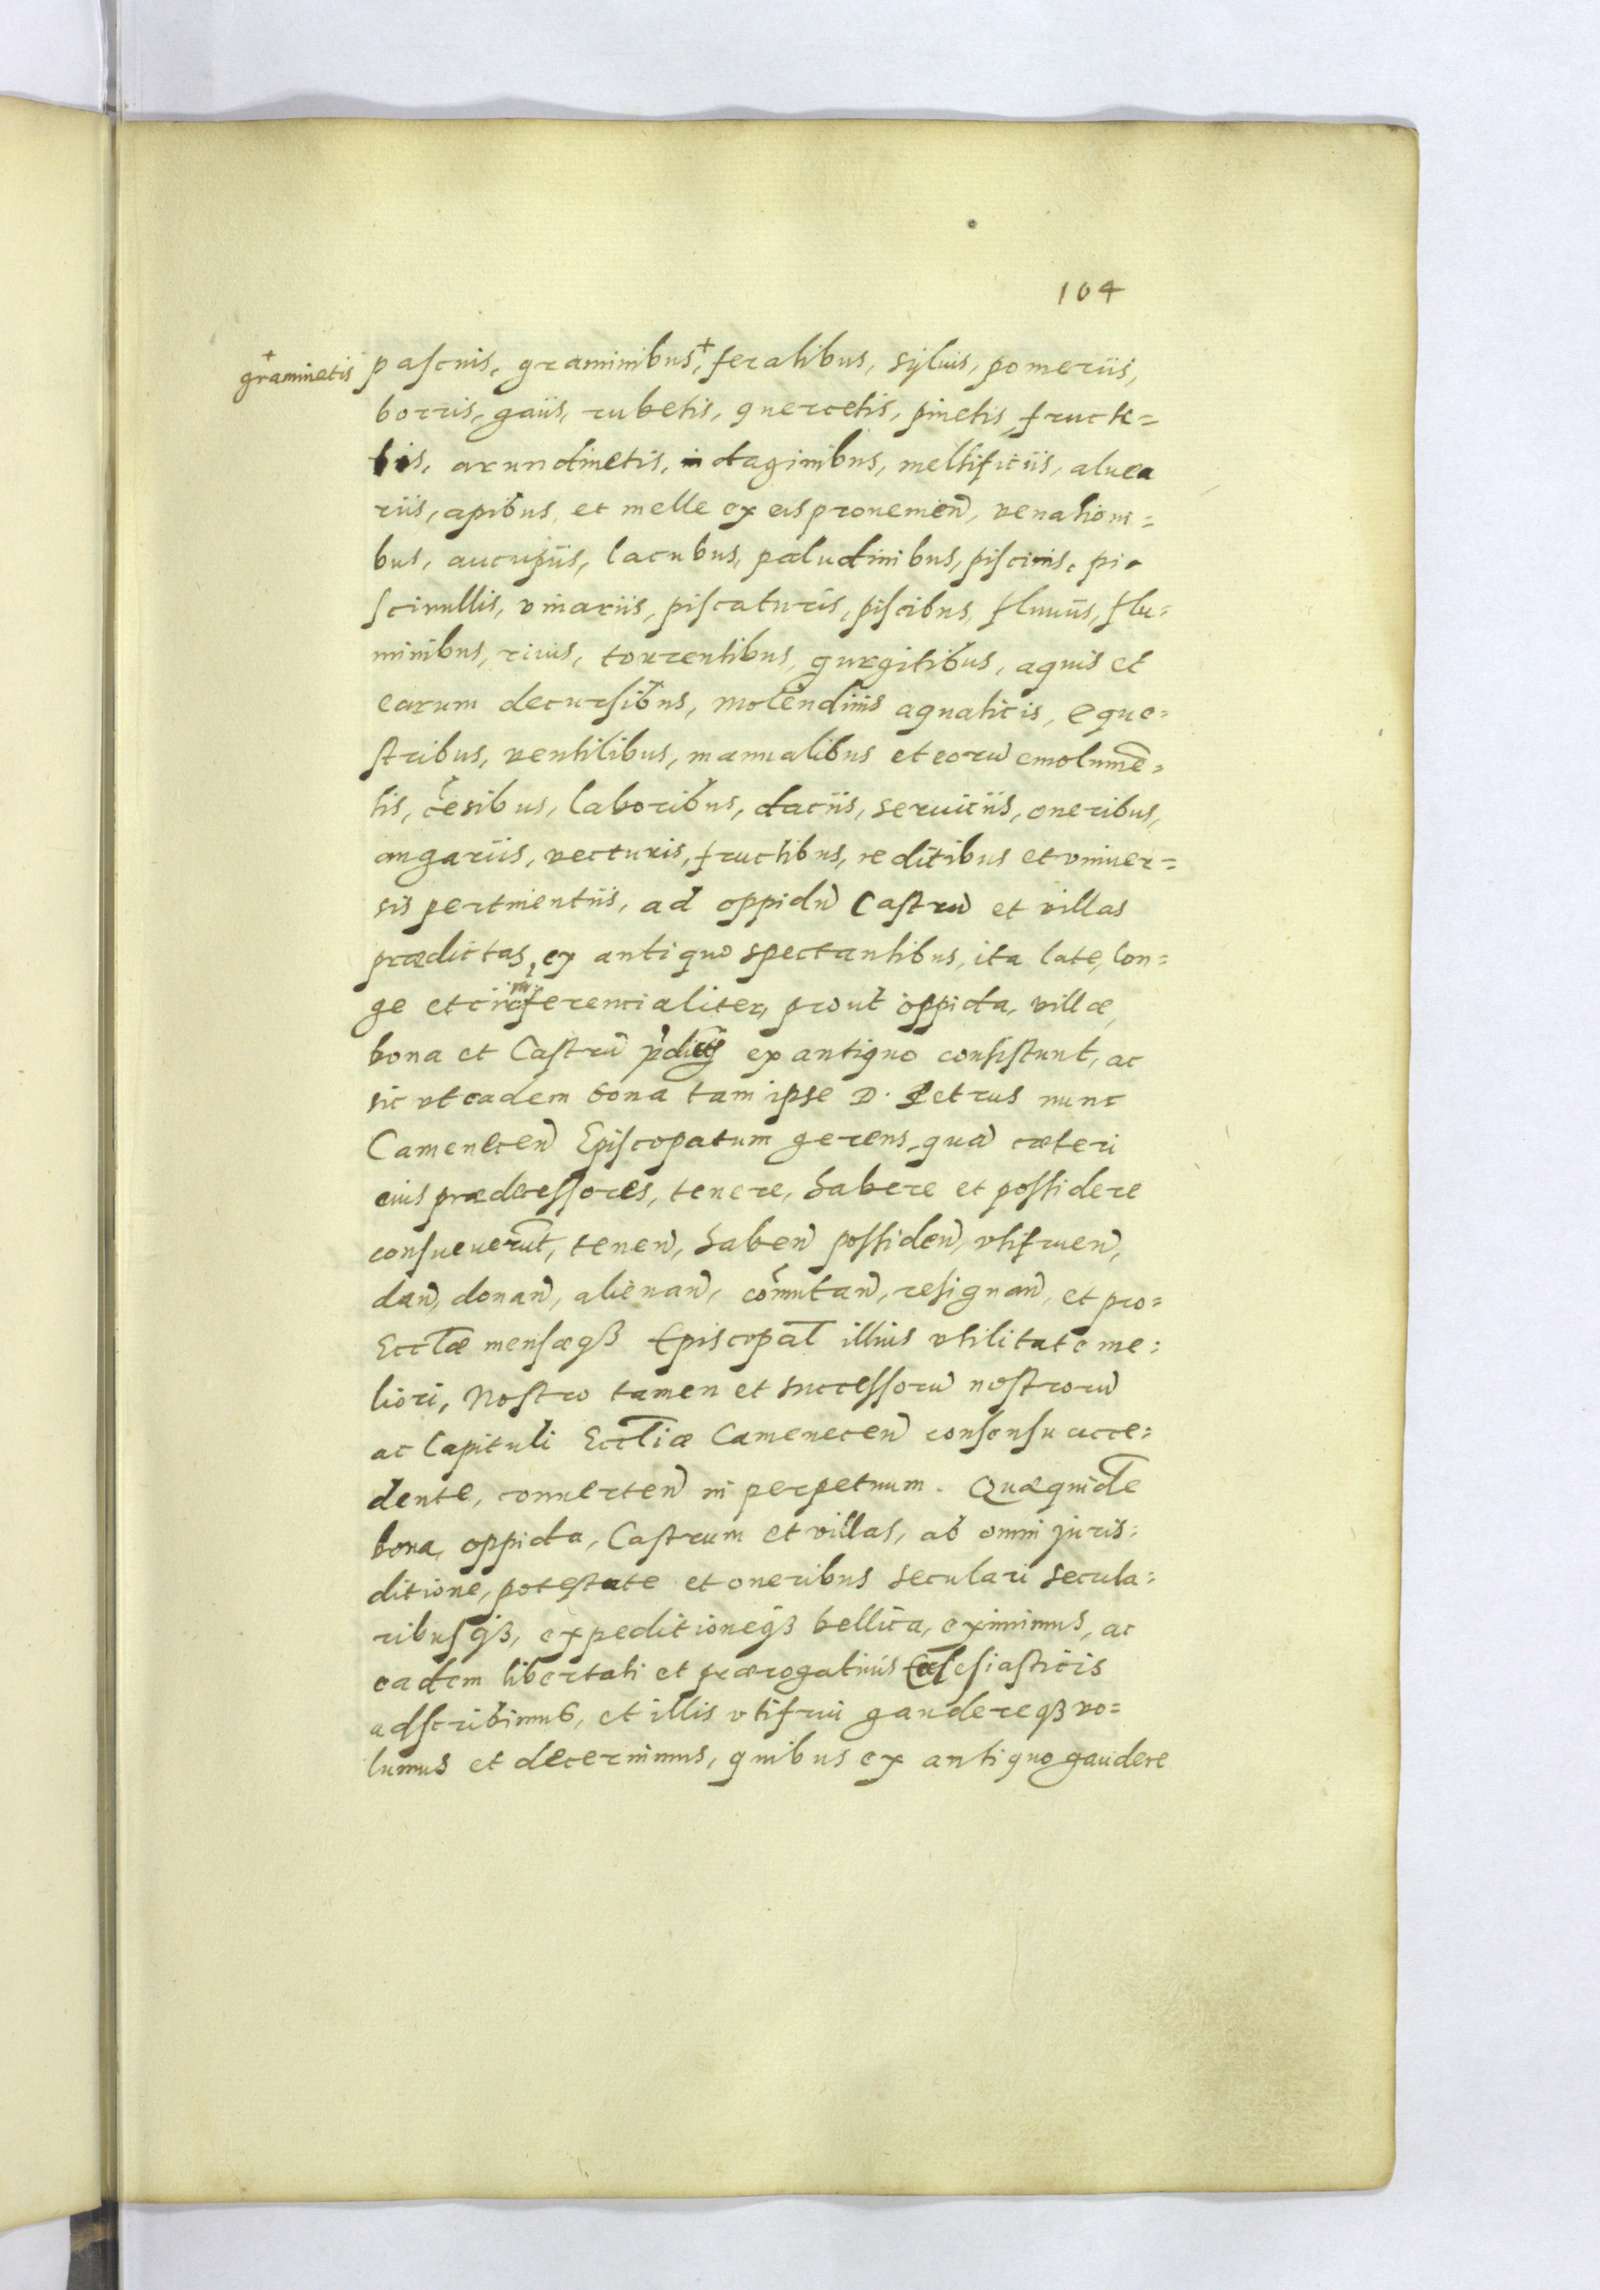 104
+ graminetis
pascuis, graminibus,+ feralibus, syluis, pomeriis,
borris, gaiis, rubetis, quercetis, pinetis, fructe=
tis, arundinetis, indaginibus, mellificiis, aluea
riis, apibus, et melle ex eis prouenien̄, venationi=
bus, aucupiis, lacubus, paludinibus, piscinis, pi=
scinullis, vinariis, piscaturis, piscibus, fluuiis, flu=
minibus, riuis, torrentibus, gurgitibus, aquis et
earum decursibus, molendinis aquaticis, eque=
stribus, ventilibus, manualibus et eorū emolumē=
tis, cēsibus, laboribus, daciis, seruitiis, oneribus,
angariis, vecturis, fructibus, reditibus et vniuer=
sis pertinentiis, ad oppidū Castrū et villas
prædictas, ex antiquo spectantibus, ita late, lon=
ge et circūferencialiter, prout oppida, villæ,
bona et Castrū p̄dict ex antiquo consistunt, ac
sic vt eadem bona tam ipse D. Petrus nunc
Camenecen̄ Episcopatum gerens, quā cæteri
eius prædecessores, tenere, habere et possidere
consueuerūt, tenen̄, haben̄ possiden̄, vtifruen̄,
dan̄, donan̄, alienan̄, cōmutan̄, resignan̄, et pro=
Eccl̄æ mensæqꝫ Episcopal̄ illius vtilitate me=
liori, Nostro tamen et successorū nostrorū
ac Capituli Eccl̄iæ Camenecen̄ consensu acce=
dente, conuerten̄ in perpetuum. Quæquidē
bona, oppida, Castrum et villas, ab omni juris=
ditione, potestate et oneribus seculari secula=
ribusqꝫ, expeditioneqꝫ bellica, eximimus, ac
eadem libertati et prærogatiuis Ecclesiasticis
adscribimus, et illis vtifrui gaudereqꝫ vo=
lumus et decernimus, quibus ex antiquo gaudere